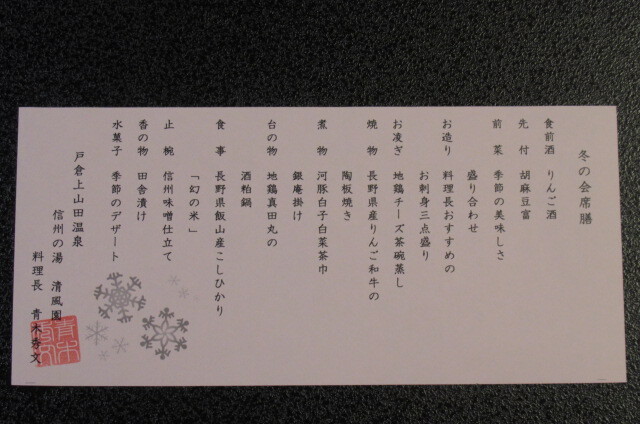 冬の会席膳
食前酒 りんご酒
先付 胡麻豆富
前菜 季節の美味しさ
盛り合わせ
お造り 料理長おすすめの
お刺身三点盛り
お凌ぎ 地鶏チーズ茶碗蒸し
焼物 長野県産りんご和牛の
陶板焼き
煮物 河豚白子白菜茶巾
銀庵掛け
台の物 地鶏真田丸の
酒粕鍋
食事 長野県飯山産こしひかり
「幻の米」
止椀 信州味噌仕立て
香の物 田舎漬け
水菓子 季節のデザート
戸倉上山田温泉
信州の湯 清風園
料理長 青木秀文